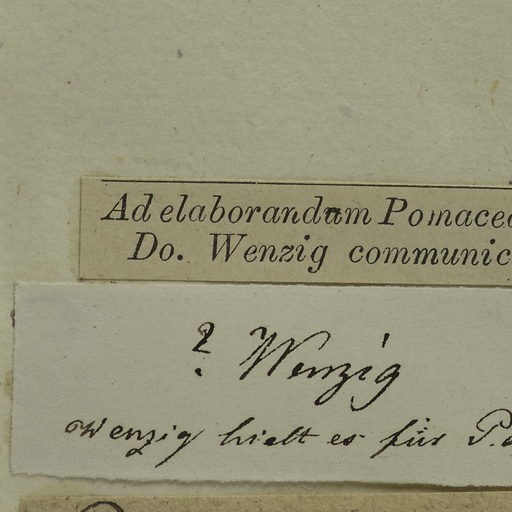 Ad elaborandum Pomaceo
Do. Wenzig communic
? Wenzig
Wenzig hielt es für P.